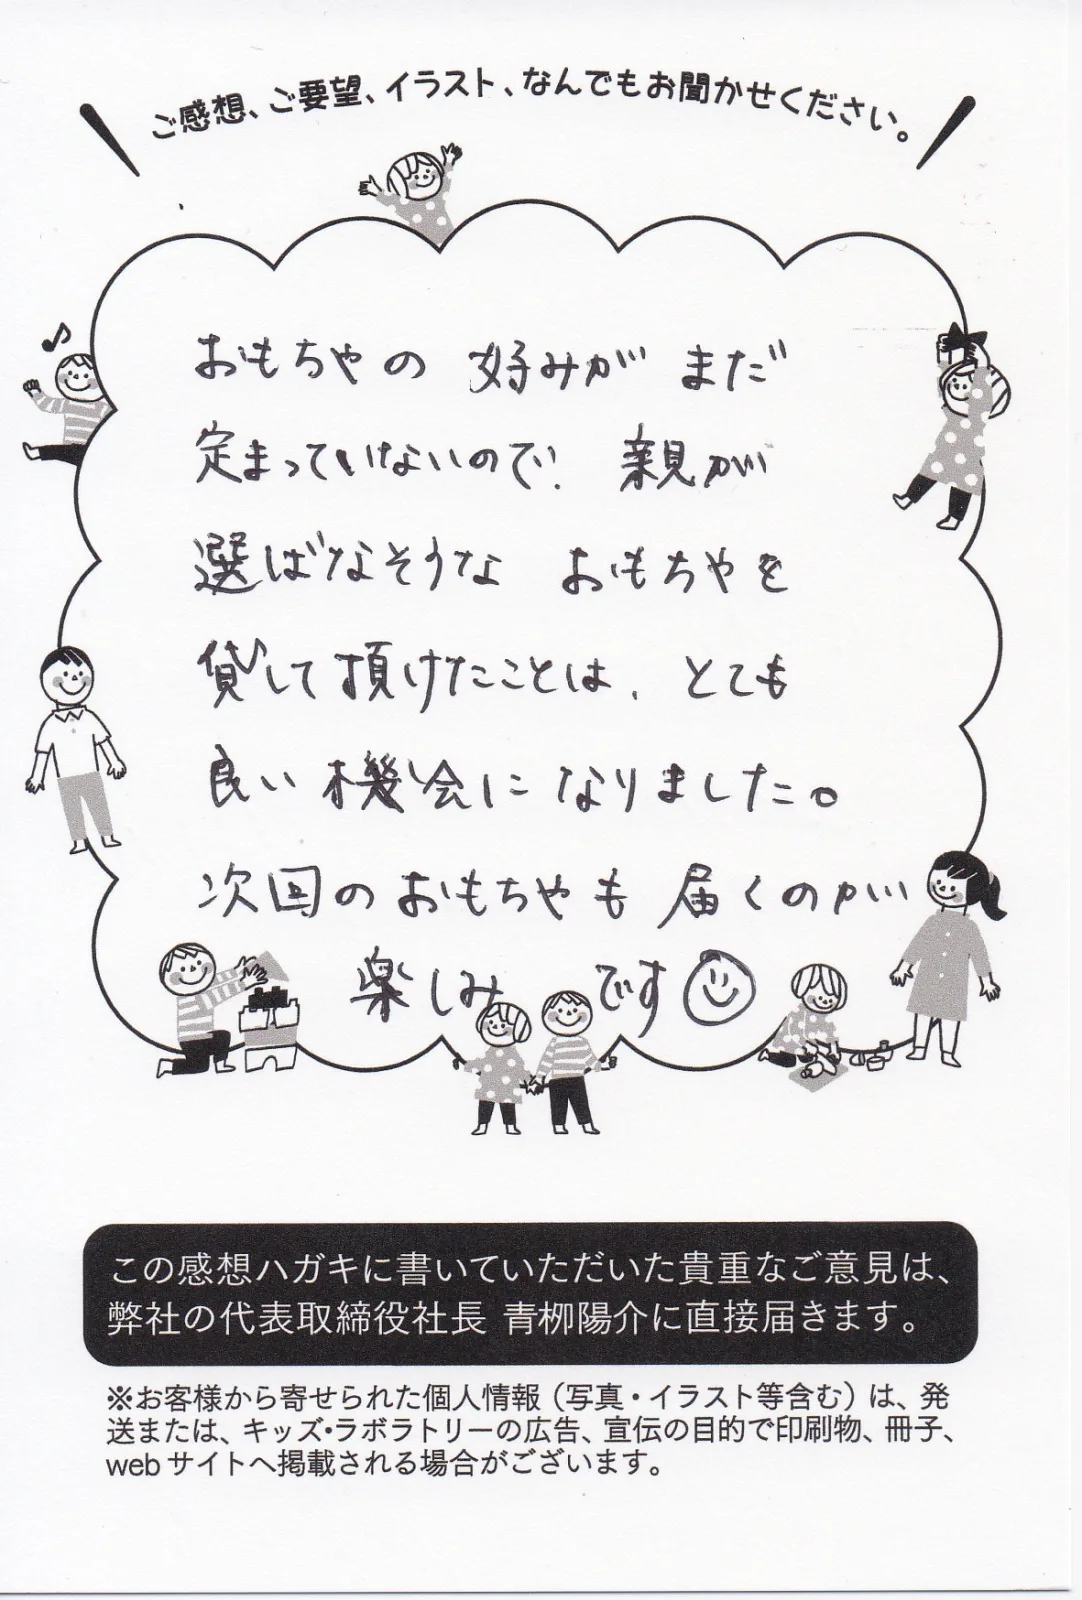 ご感想、ご要望、イラスト、なんでもお聞かせください。
おもちゃの 好みが まだ
定まっていないので、親が
選ばなそうな おもちゃを
貸して頂けたことは、とても
良い機会になりました。
次回のおもちゃも 届くのが
楽しみ です
この感想ハガキに書いていただいた貴重なご意見は、
弊社の代表取締役社長 青栁陽介に直接届きます。
※お客様から寄せられた個人情報（写真・イラスト等含む）は、発
送または、キッズ・ラボラトリーの広告、宣伝の目的で印刷物、冊子、
webサイトへ掲載される場合がございます。